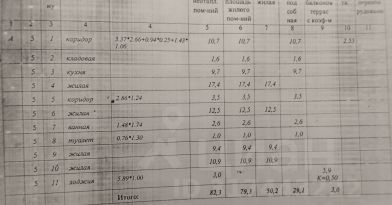 ну
неотапл. пом-ний площадь жилого пом-ния жилая под соб ная балконов террас с коэф-м
1 2 3 4 4 5 6 7 8 9 10 11
А 5 1 коридор 3.37*2.66+0.94*0.25+1.43* 1.06 10,7 10,7 10,7 2.53
5 2 кладовая 1,6 1,6 1,6
5 3 кухня 9,7 9,7 9,7
5 4 жилая 17,4 17,4 17,4
5 5 коридор 2.86*1.24 3,5 3,5 3,5
5 6 жилая 12,5 12,5 12,5
5 7 ванная 1.48*1.74 2,6 2,6 2,6
5 8 туалет 0.76*1.30 1,0 1,0 1,0
5 9 жилая 9,4 9,4 9,4
5 10 жилая 10,9 10,9 10,9
5 11 лоджия 5.89*1.00 3,0 5,9 К=0,50
Итого: 82,3 79,3 50,2 29,1 3,0